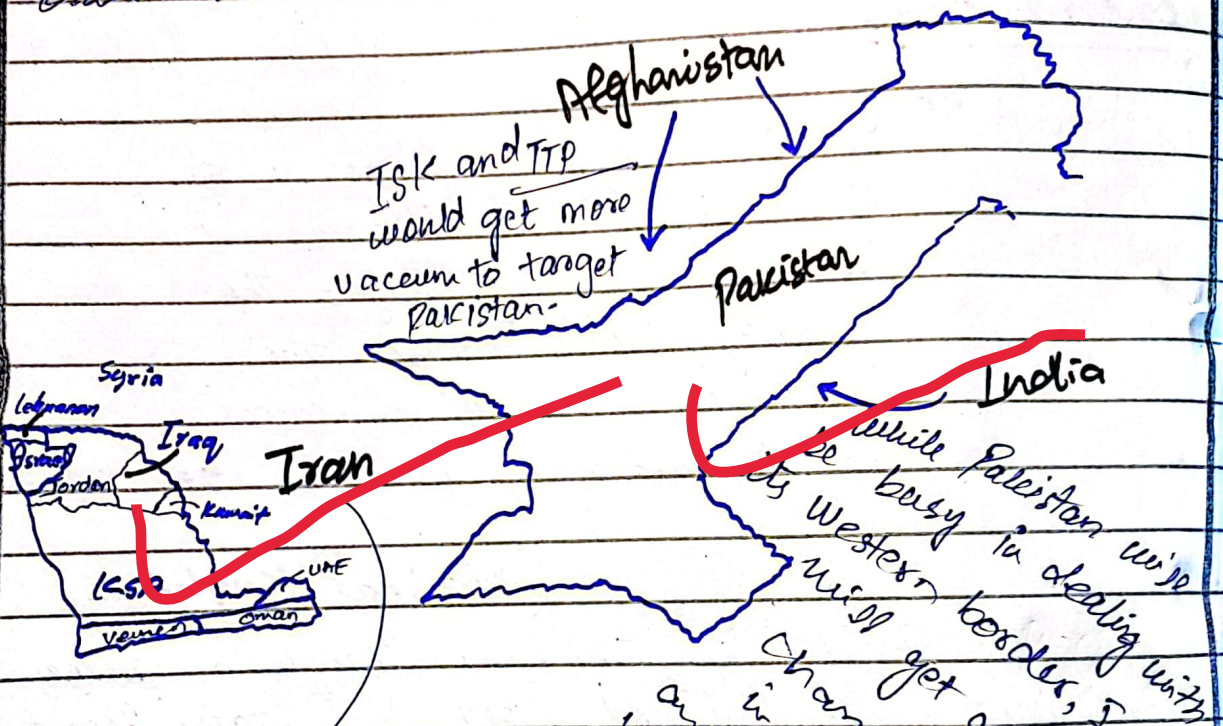 Afghanistan
ISK and TTP
would get more
vaccum to target
Pakistan.
Pakistan
Syria
Lebnanan
Israel
Iraq
Jordan
Kuwait
Iran
KSA
UAE
Yemen
Oman
India
while Pakistan will
be busy in dealing with
its western border, I
will get
chan
in
an